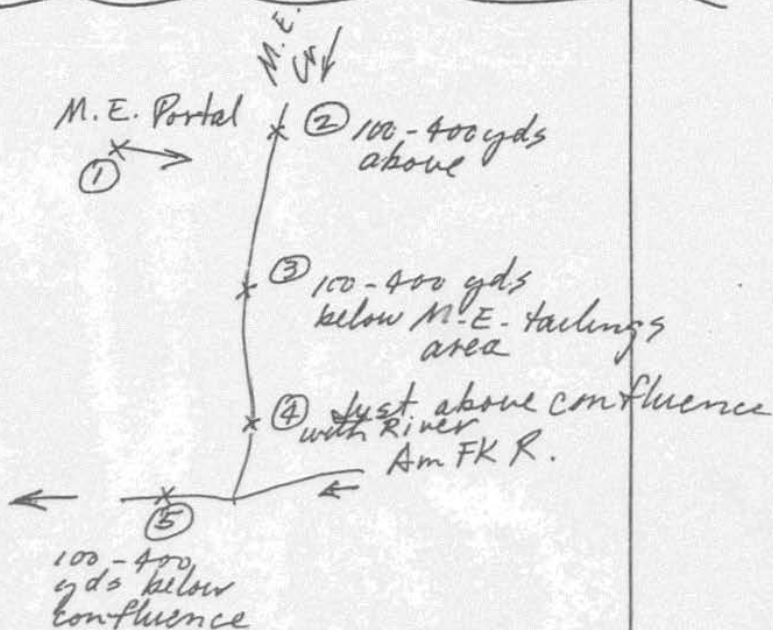 M.E.
Cr
M.E. Portal
①
② 100-400 yds
above
③ 100-400 yds
below M.E. tailings
area
④ Just above confluence
with River
Am FK R.
⑤
100-400
yds below
confluence